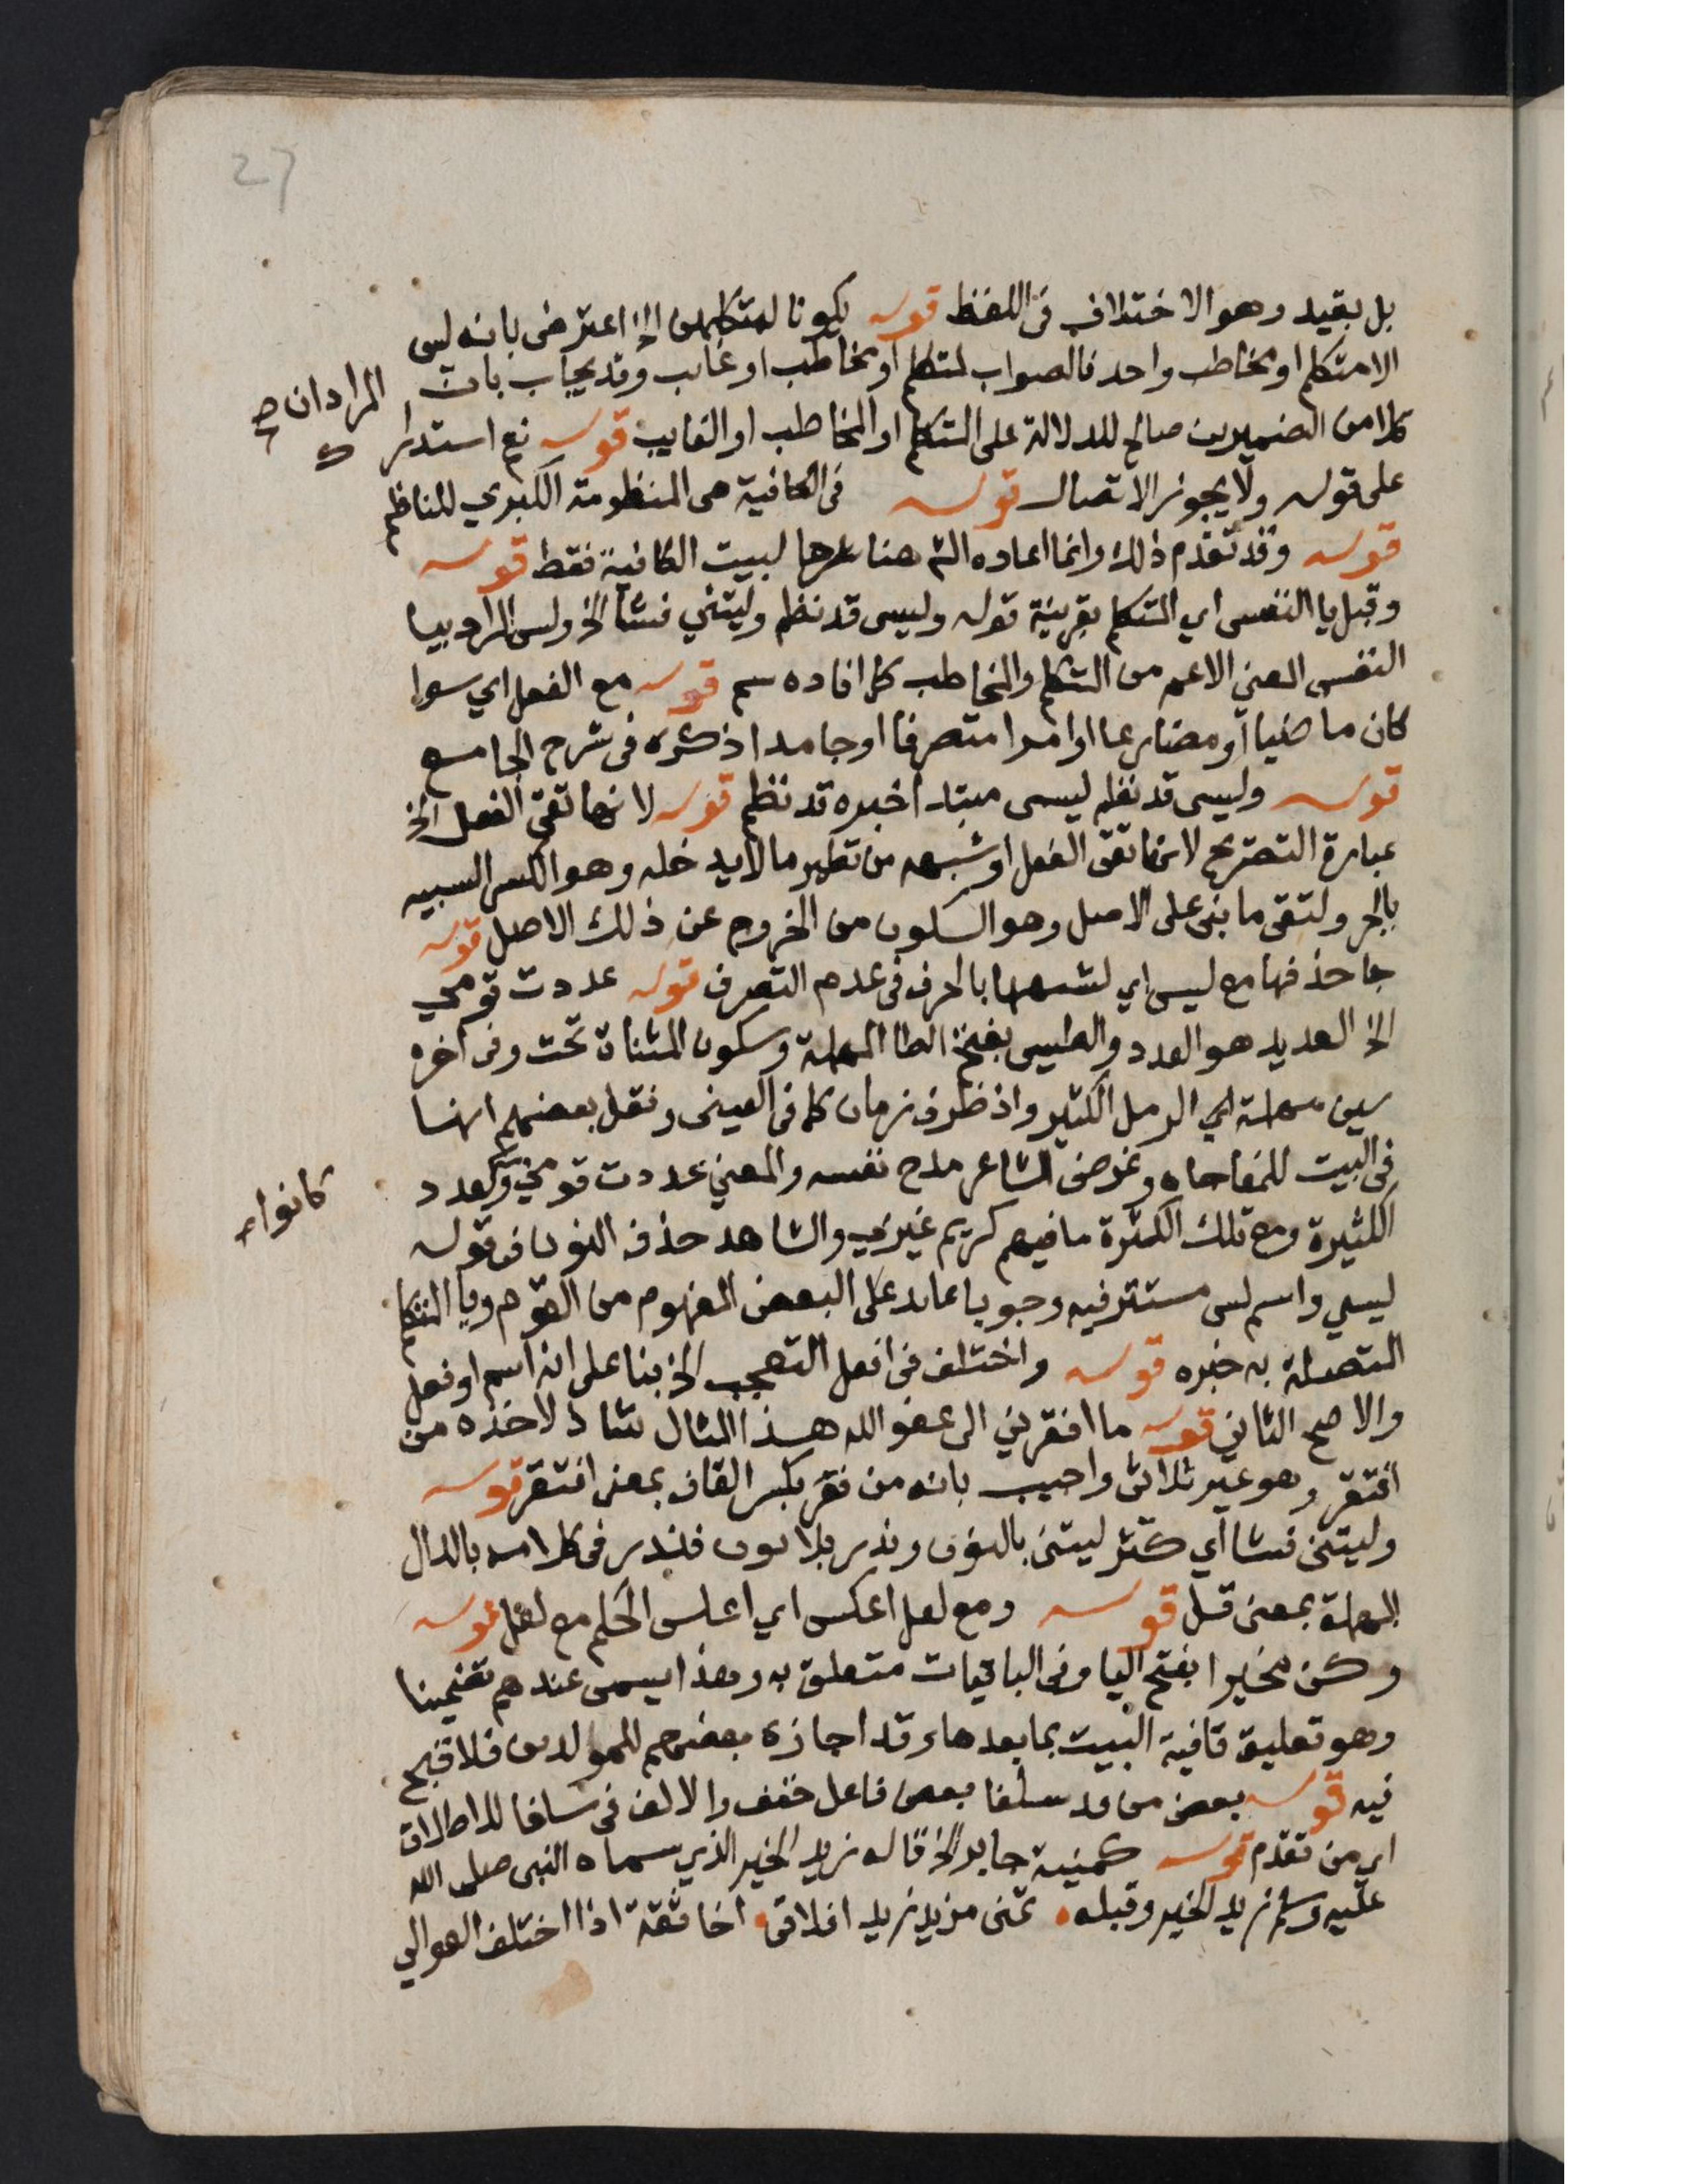 27
بل بقيد وهو الاختلاف فى اللفظ قوله يكونا لمتكلمين الخ اعترض بانه ليس
الا متكلم او مخاطب واحد فالصواب لمتكلم او مخاطب او غايب وقد يجاب بان
المراد ان صح
كلا من الضميرين صالح للدلالة على المتكلم او المخاطب او الغايب قوله نعم استدرا
ك
على قوله ولا يجوز الاتصال قوله فى الكافية هى المنظومة الكبري للناظم
قوله وقد تقدم ذلك وانما اعاده الش هنا لبيت الكافية فقط قوله
وقبل يا النفس اي المتكلم بقرينة قوله وليسى قد نظم وليتني فشا الخ وليس المراد بيا
النفس المعني الاعم من المتكلم والمخاطب كما افاده سم قوله مع الفعل اي سوا
كان ماضيا او مضارعا او امرا متصرفا او جامدا ذكره فى شرح الجامع
قوله وليسى قد نظم ليسى مبتدا خبره قد نظم قوله لانها تقى الفعل الخ
عبارة التصريح لانها تقى الفعل او شبهه من نظير ما لا يدخله وهو الكسر الشبيه
بالجر ولتقى ما بنى على الاصل وهو السكون من الخروج عن ذلك الاصل قوله
جا حذفها مع ليس اي لشبهها بالحرف فى عدم التصرف قوله عددت قومي
الخ العديد هو العدد والطيس بفتح الطا المهملة وسكون المثناة تحت وفى اخره
سين مهملة اي الرمل الكثير واذ ظرف زمان كما فى العينى ونقل بعضهم انها
فى البيت للمفاجاه وغرض الشاعر مدح نفسه والمعني عددت قومي وكعدد
كانوا
الكثيرة ومع تلك الكثرة ما فيهم كريم غيري والشاهد حذف النون فى قوله
ليسي واسم ليس مستتر فيه وجوبا عايد على البعض المفهوم من القوم ويا المتكلم
المتصلة به خبره قوله واختلف فى افعل التعجب الخ بنا على انه اسم او فعل
والاصح الثاني قوله ما افقرني الى عفو الله هذا المثال شاذ لاخذه من
افتقر وهو غير ثلاثى واجيب بانه من فقر بكسر القاف بمعنى افتقر قوله
وليتنى فشا اي كثر ليتنى بالنون وندر بلا نون فندر فى كلامه بالدال
المهملة بمعنى قل قوله ومع لعل اعكس اي اعكس الحكم مع لعل قوله
وكن مخيرا بفتح اليا وفى الباقيات متعلق به وهذا يسمى عندهم تضمينا
وهو تعليق قافية البيت بما بعدها وقد اجازه بعضهم للمولدين فلا قبح
فيه قوله بعض من قد سلفا بعض فاعل خفف والالف فى سلفا للاطلاق
اي من تقدم قوله كمنية جابر الخ قاله زيد الخير الذي سماه النبى صلى الله
عليه وسلم زيد الخير وقبله تمنى مزيد زيدا فلاقى اخا ثقة اذا اختلف العوالي